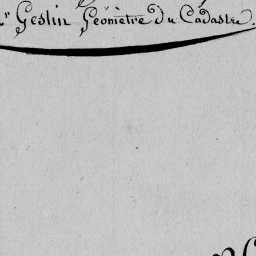 Gestin Géometre du Cadastre.